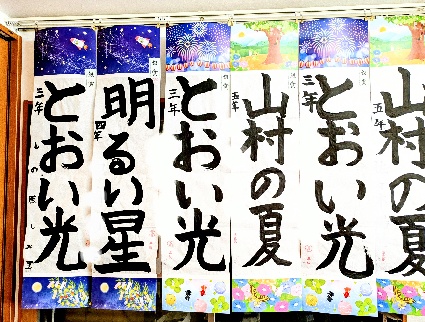 とおい光
三年
明るい星
四年
とおい光
三年
山村の夏
五年
とおい光
三年
山村の夏
五年